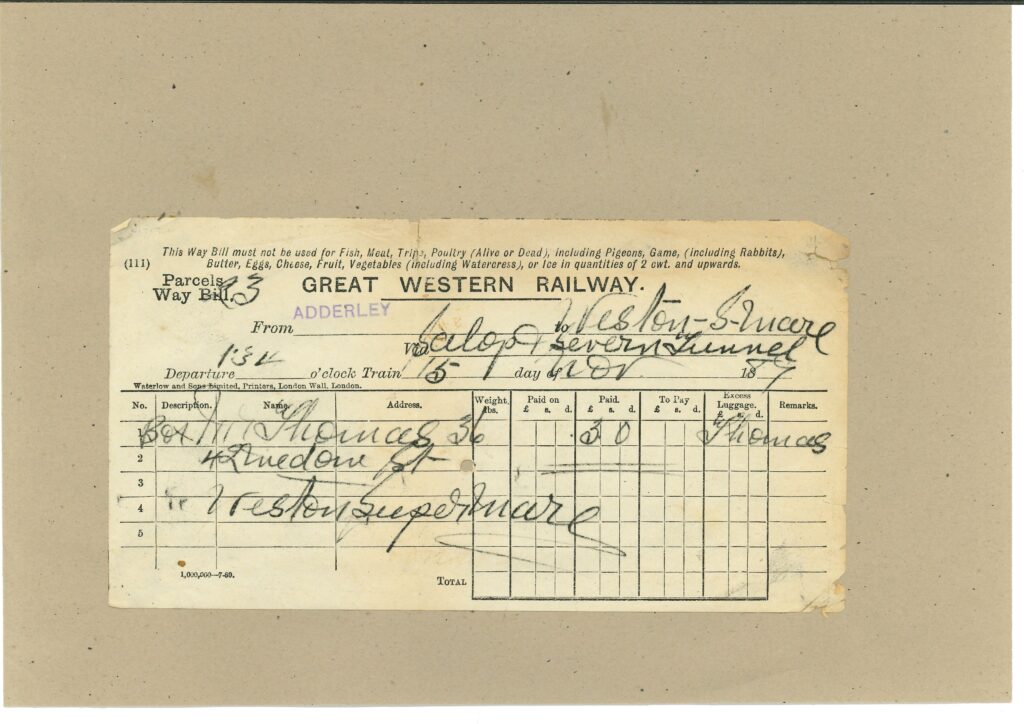 This Way Bill must not be used for Fish, Meat, Tripe, Poultry (Alive or Dead), including Pigeons, Game, (including Rabbits),
(111) Butter, Eggs, Cheese, Fruit, Vegetables (including Watercress), or Ice in quantities of 2 cwt. and upwards.
Parcels
Way Bill. 23 GREAT WESTERN RAILWAY.
From ADDERLEY to Weston-S-Mare
Via Salop & Severn Tunnel
Departure o'clock Train 15 day of Nov 18
Waterlow and Sons Limited, Printers, London Wall, London.
No. Description. Name. Address. Weight lbs. Paid on £ s. d. Paid. £ s. d. To Pay £ s. d. Excess Luggage. £ s. d. Remarks.
1 Box Thomas 36 3 0 Thomas
2 4 St
3
4 Weston Super Mare
5
1,000,000—7-89. TOTAL